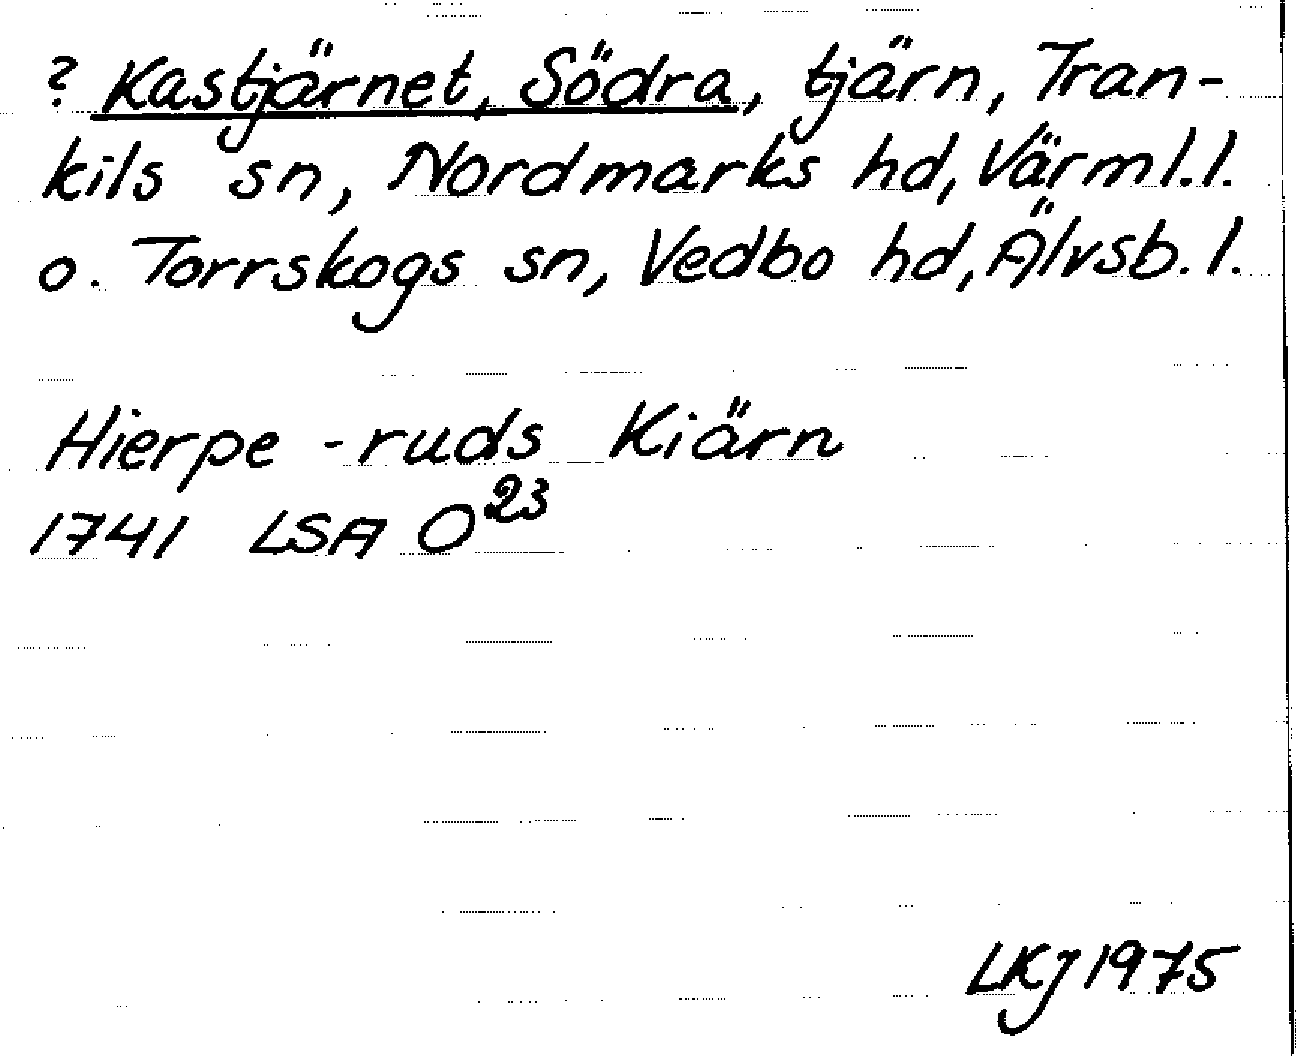 ? Kastjärnet, Södra, tjärn, Tran-
kils sn, Nordmarks hd, Värml.l.
o. Torrskogs sn, Vedbo hd, Älvsb.l.
Hierpe-ruds Kiärn
1741 LSA O²³
LKJ 1975